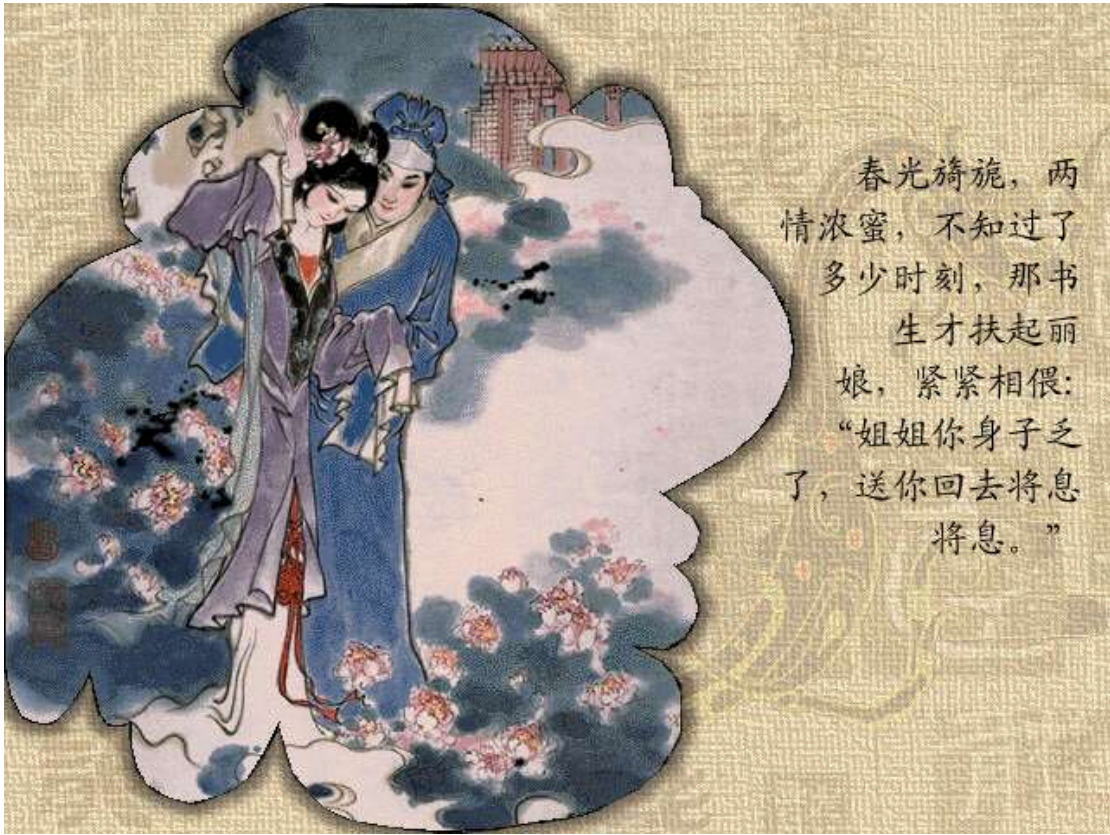 春光旖旎，两
情浓蜜，不知过了
多少时刻，那书
生才扶起丽
娘，紧紧相偎：
“姐姐你身子乏
了，送你回去将息
将息。”